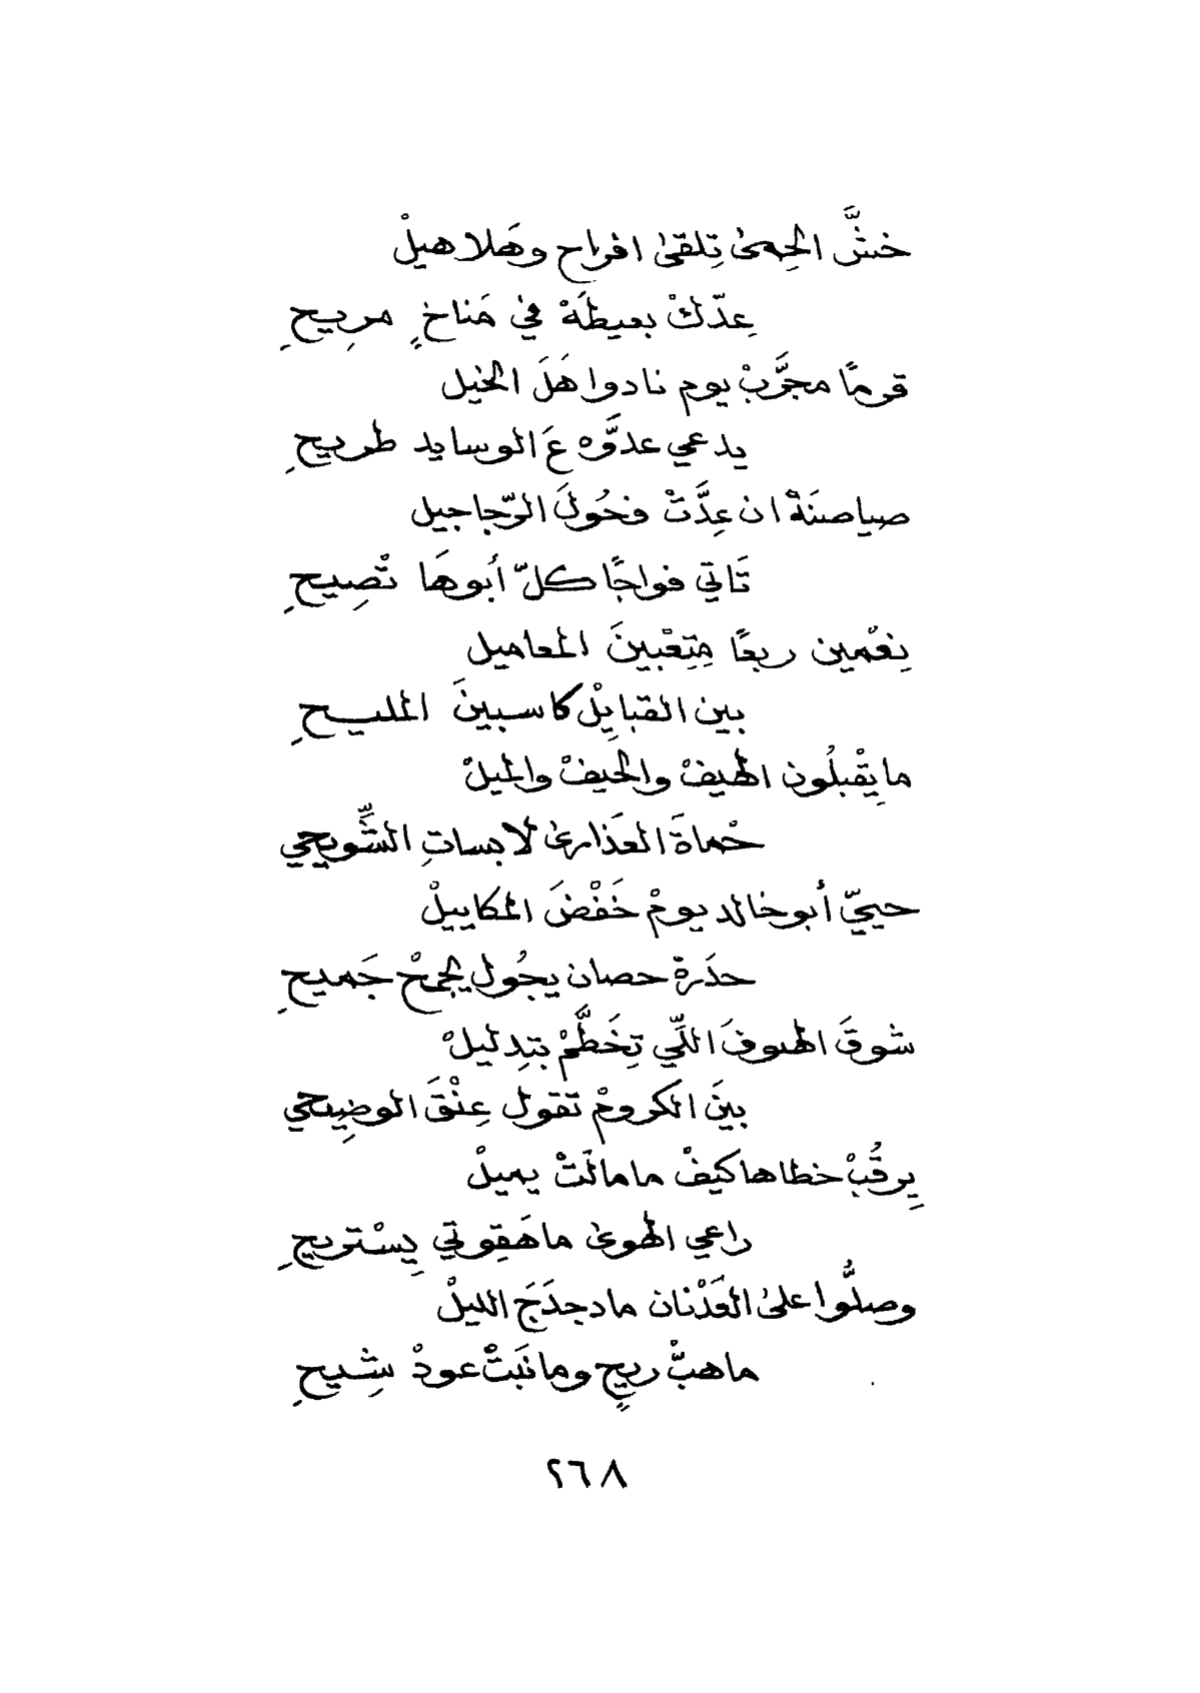 خشَّ الحِمىٰ تِلقىٰ افراح وهَلاهيلْ
عِدّكْ بعيطَهْ في مَناخٍ مرِيحِ
قومًا مجرَّبْ يوم نادوا هَلَ الخيل
يدعي عدوَّه عَ الوسايد طريحِ
صياصنَهْ ان عِدَّتْ فحُولَ الرّجاجيل
تَاتي فواجًا كلّ أبوهَا تْصِيحِ
نِعْمين ربعًا مِتِعْبينَ المعاميل
بين القبايِلْ كاسبينَ المليحِ
ما يِقْبلُون الهيفْ والحيفْ والميلْ
حْماةَ العَذارىٰ لابساتِ الشِّويحي
حييّ أبو خالد يومْ خَفْضَ المكاييلْ
حذَرة حصان يجُول يجمحْ جَميحِ
شوقَ الهنوفَ اللّي تِخَطَّمْ بتِدليلْ
بينَ الكرومْ تقول عِنْقَ الوضِيحي
يِرقُبْ خطاها كيفْ ما مالَتْ يميلْ
راعي الهوىٰ ماهَقِوتي يِسْتريحِ
وصلُّوا علىٰ العَدْنان ما دجدَجَ الليلْ
ما هبّْ ريحٍ وما نَبَتْ عودْ شِيحِ
٢٦٨